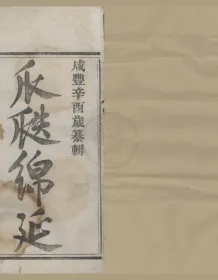 咸豐辛酉歲纂輯
瓜瓞綿延